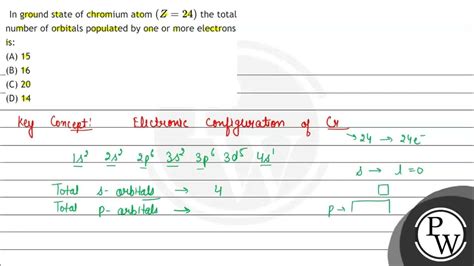 In ground state of chromium atom (Z = 24) the total
number of orbitals populated by one or more electrons
is:
(A) 15
(B) 16
(C) 20
(D) 14
Key Concept: Electronic Configuration of Cr
24 → 24e⁻
1s² 2s² 2p⁶ 3s² 3p⁶ 3d⁵ 4s¹
s → l=0
Total s-orbitals → 4
Total p-orbitals →
p →
PW